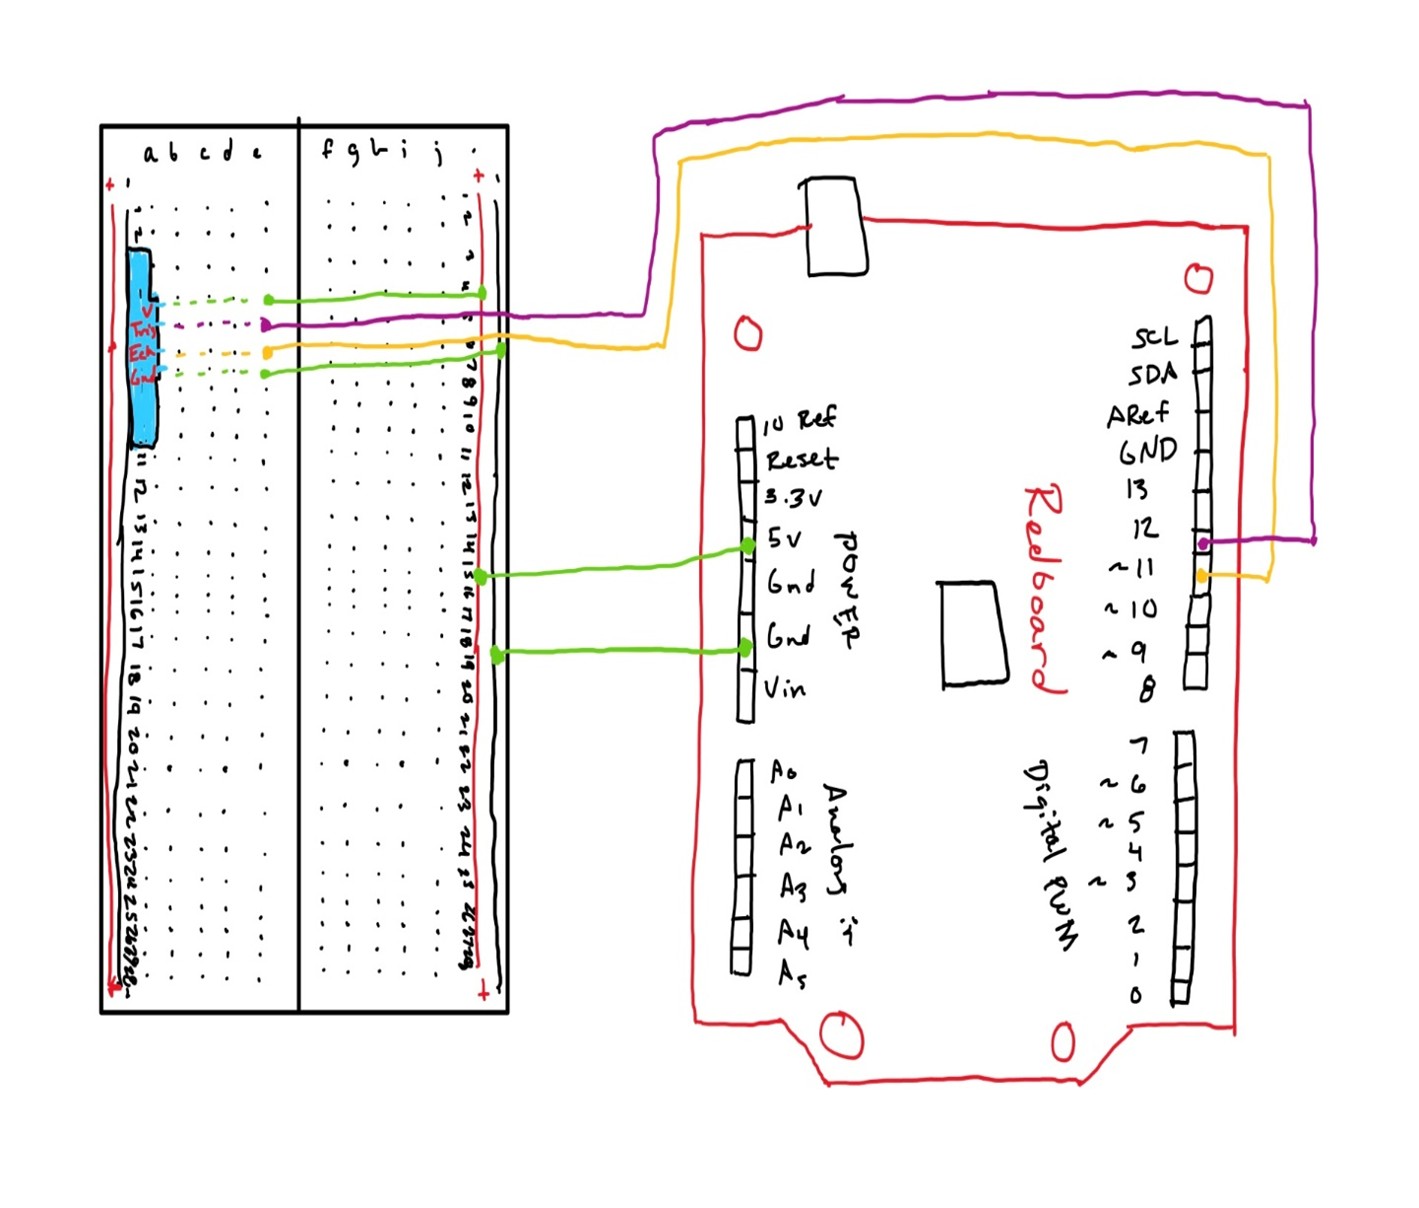 a b c d e f g h i j
+ - + -
1
2
V
Trig
Ech
Gnd
11
12
13
14
15
16
17
18
19
20
21
22
23
24
25
26
27
28
1
2
3
4
5
6
7
8
9
10
11
12
13
14
15
16
17
18
19
20
21
22
23
24
25
26
27
28
+ - +
IO Ref
Reset
3.3V
5v
Gnd
Gnd
Vin
POWER
A0
A1
A2
A3
A4
A5
Redboard
SCL
SDA
ARef
GND
13
12
~11
~10
~9
8
7
~6
~5
4
~3
2
1
0
Digital PWM